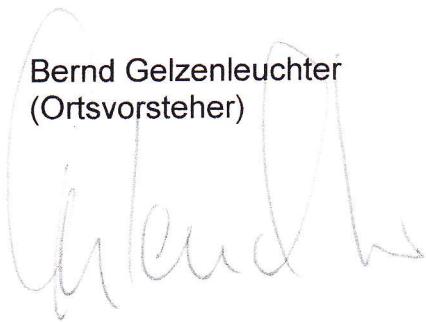 Bernd Gelzenleuchter
(Ortsvorsteher)